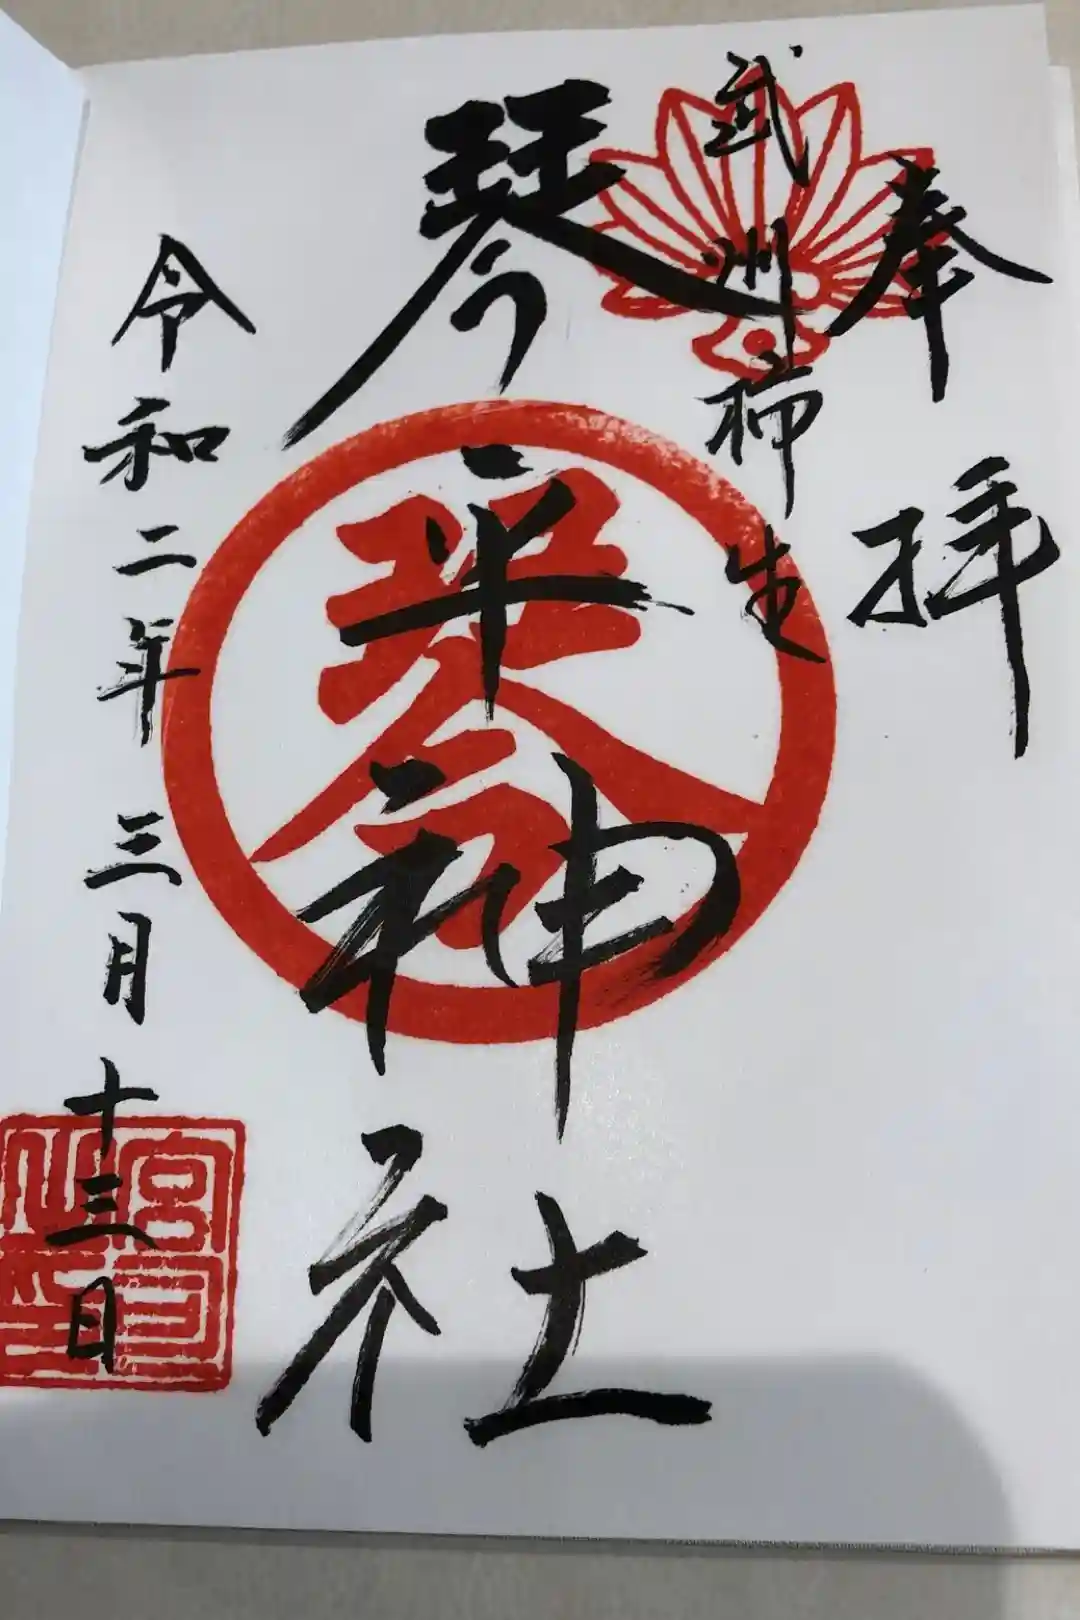 奉拝
武州柿生
琴平神社
琴
令和二年三月十三日
宮司之印